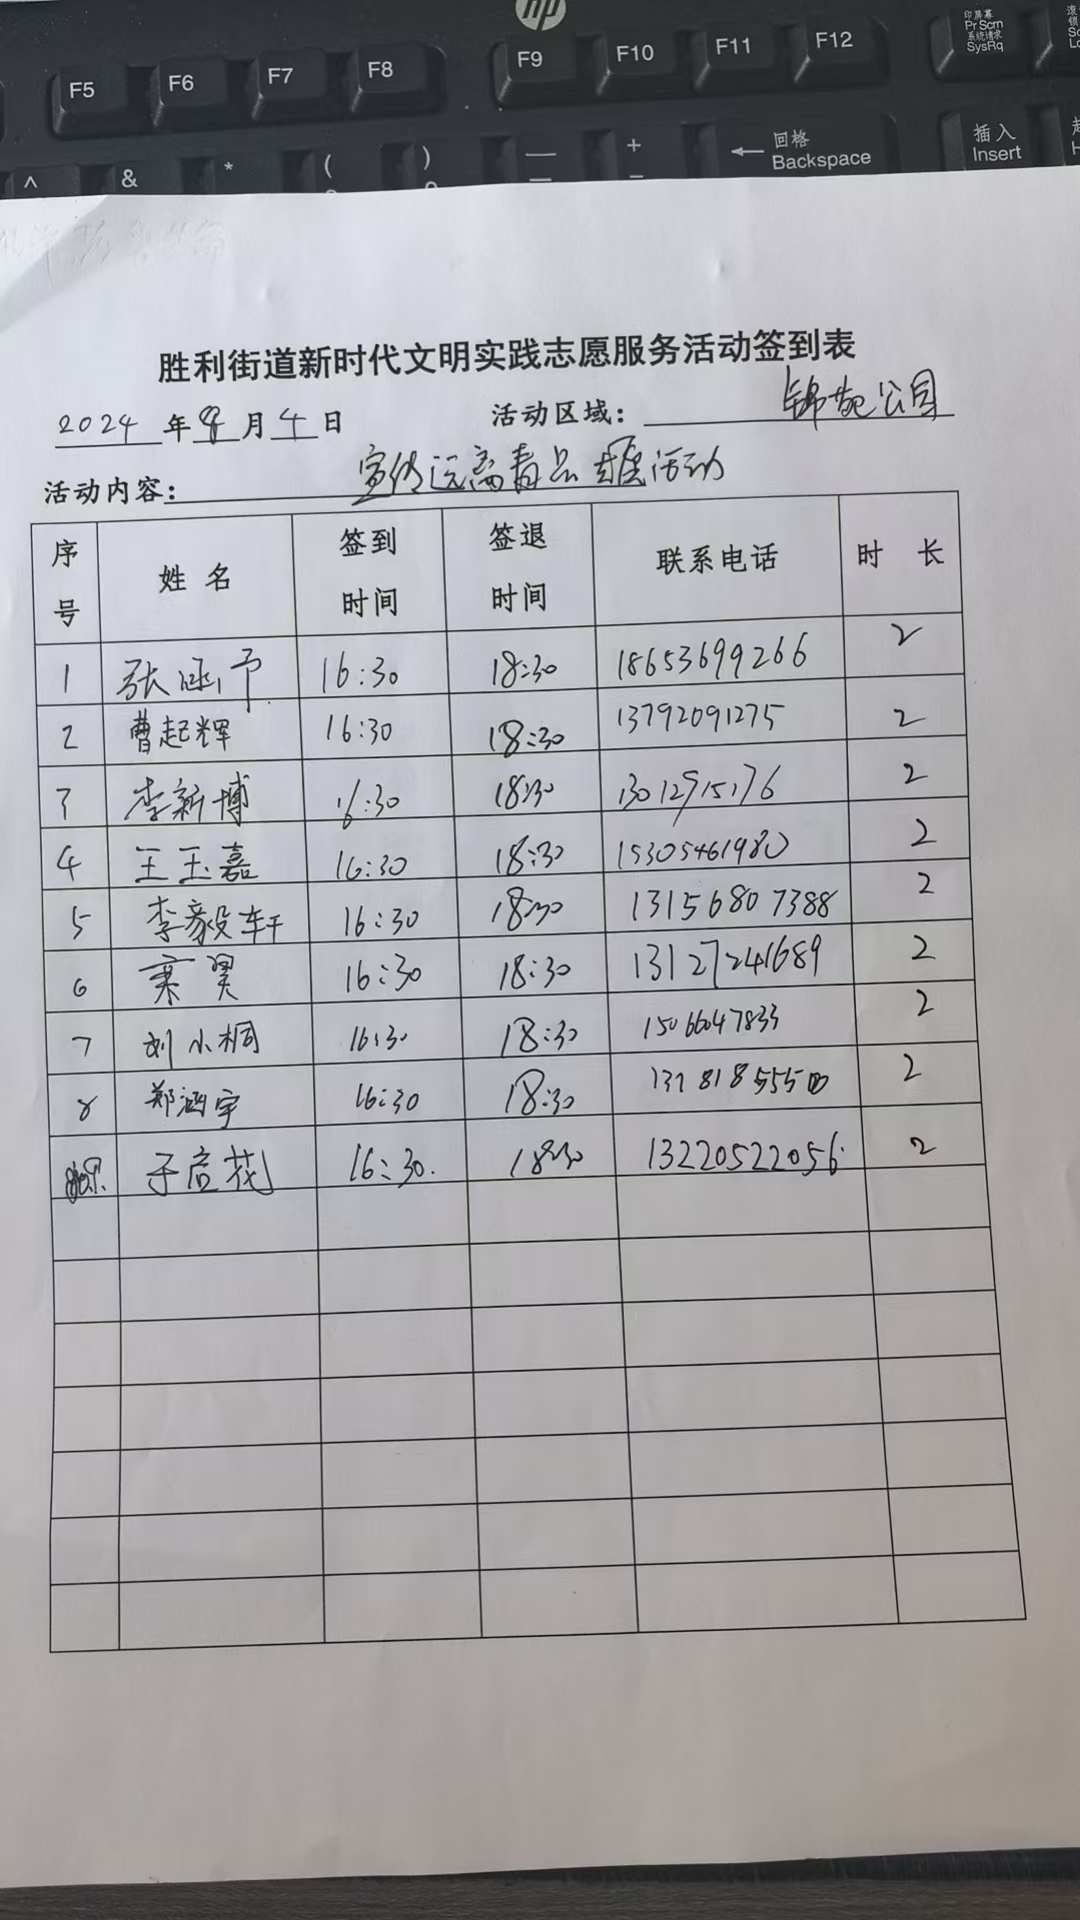 hp
F5 F6 F7 F8 F9 F10 F11 F12 印屏幕 Pr Scrn 系统请求 SysRq
^ & * ( ) — + ← 回格 Backspace 插入 Insert
胜利街道新时代文明实践志愿服务活动签到表
2024年8月4日 活动区域：锦苑公园
活动内容：宣传远离毒品 活动
序号 姓名 签到时间 签退时间 联系电话 时长
1 张涵予 16:30 18:30 18653699266 2
2 曹起辉 16:30 18:30 13792091275 2
3 李新博 16:30 18:30 13012915176 2
4 王玉嘉 16:30 18:30 15305461980 2
5 李毅轩 16:30 18:30 13156807388 2
6 翼 16:30 18:30 13127241689 2
7 刘小桐 16:30 18:30 15066047833 2
8 郑涵宇 16:30 18:30 2
于启花 16:30. 18:30 13220522056. 2